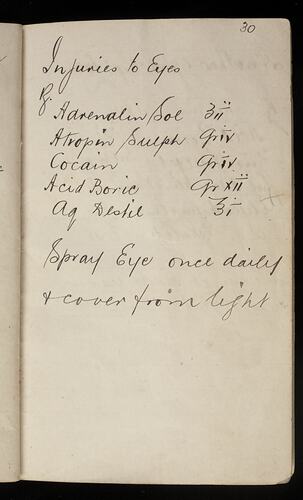 30
Injuries to Eyes
℞.
Adrenalin Sol ʒii
Atropin Sulph Gr iv
Cocain Gr iv
Acid Boric Gr xii
Aq Destil ℥i
Spray Eye once daily
& cover from light